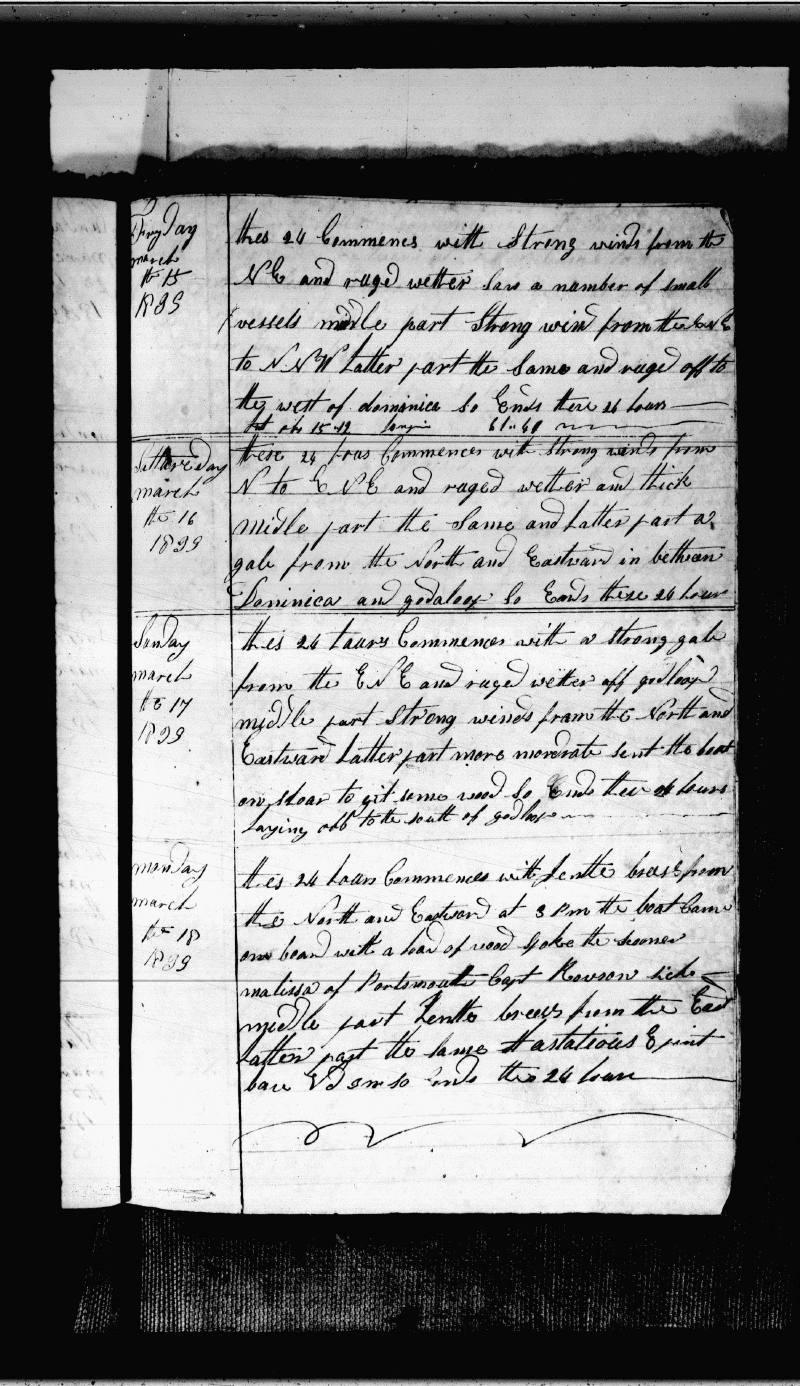 Fryday
march
the 15
1833
thes 24 Commences with Strong winds from the
N E and raged wether Saw a number of small
vessels midle part Strong wind from the ENE
to N N W Latter part the Same and raged off to
the west of dominica So Ends these 24 hours
Lat obs 15-12 61..40
Satturday
march
the 16
1833
these 24 hous Commences with Strong winds from
N to E N E and raged wether and thick
midle part the Same and Latter part a
gale from the North and Eastward in bethwen
Dominica and godaloop So Ends these 24 hours
Sunday
march
the 17
1833
this 24 hours Commences with a Strong gale
from the E N E and raged wether off godloop
middle part Strong winds from the North and
Eastward Latter part more morderate sent the boat
on shoar to git some wood So Ends these 24 hours
Laying obb to the south of godloop
monday
march
the 18
1833
this 24 hours Commences with Jentle breas from
the North and Eastward at 3 Pm the boat Came
on board with a load of wood Spoke the scooner
malissa of Portsmouth Capt Rowson
middle part Jentle breeas from the East
Latter part the Same Stastatious E point
bare so Ends thes 24 hours